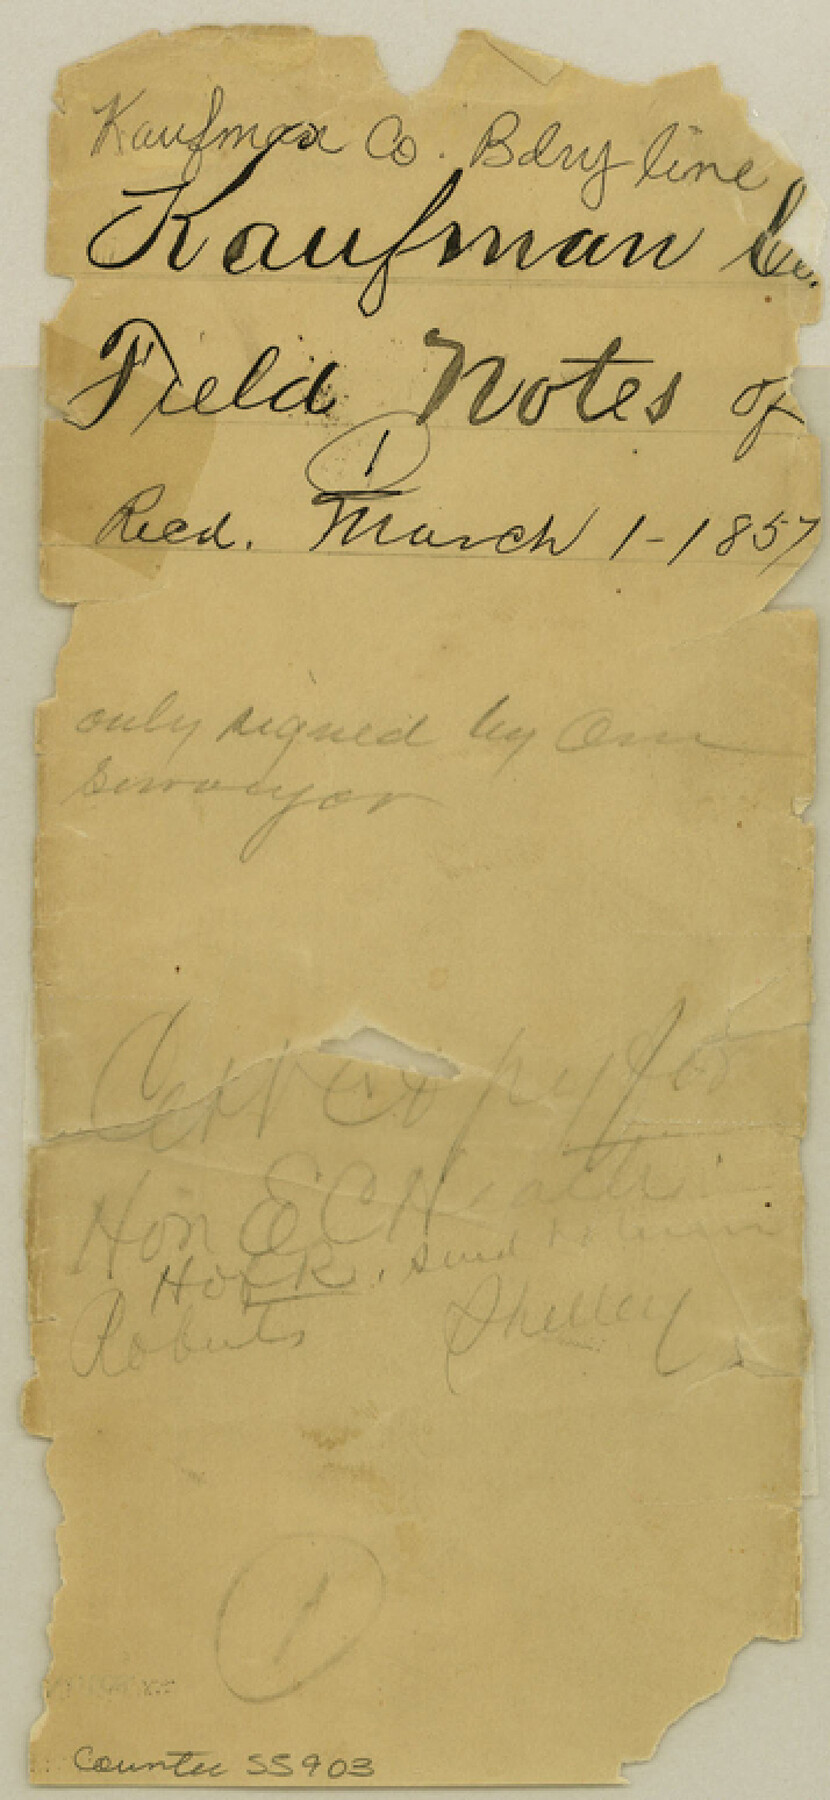 Kaufman Co. Bdry line
Kaufman Co.
Field Notes of
1
Recd. March 1-1857
only signed by One
Surveyor
Cert Copy for
Hon E C Heath
Hon R. send
Roberts Shelley
1
Counter 55903